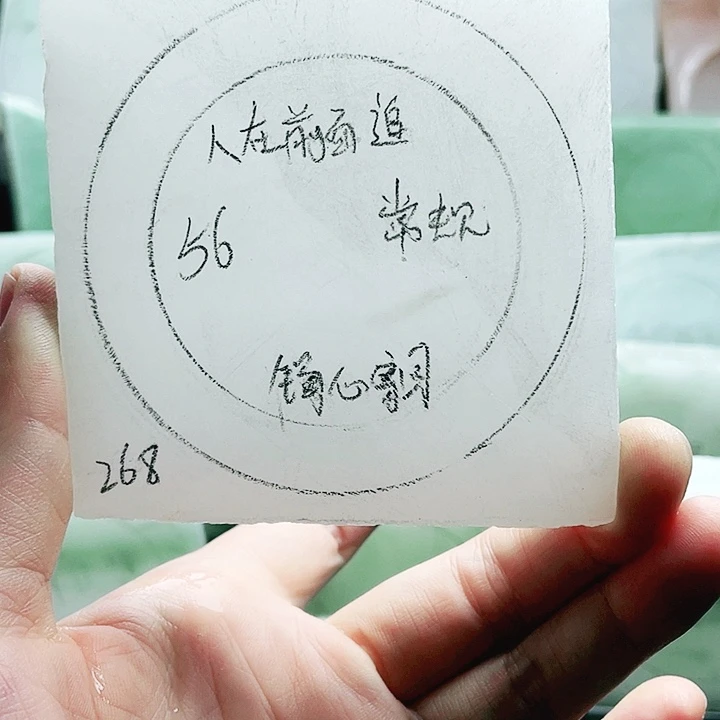 人在前面追
56 常规
心
268